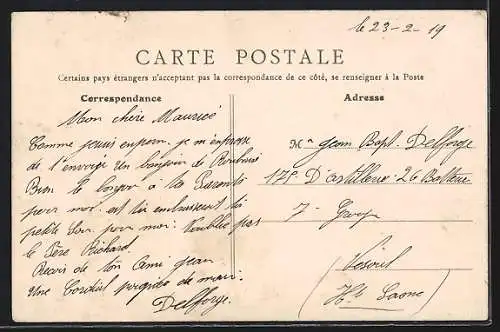 le 23-2-19
CARTE POSTALE
Certains pays étrangers n'acceptant pas la correspondance de ce côté, se renseigner à la Poste
Correspondance
Adresse
Mon chère Maurice
Comme je m'empresse
de t'envoyer un bonjour de
Bien le bonjour à tes Parents
pour moi et en embrassant ta
petite Sœur pour moi. N'oublie pas
le Père Richard.
Recois de ton ami Jean
Une Cordial poignée de main.
Delforge.
Mr Jean Bapt. Delforge
17e D'artillerie 26 Batterie
7 Group
Vésoul
(Hte Saone)